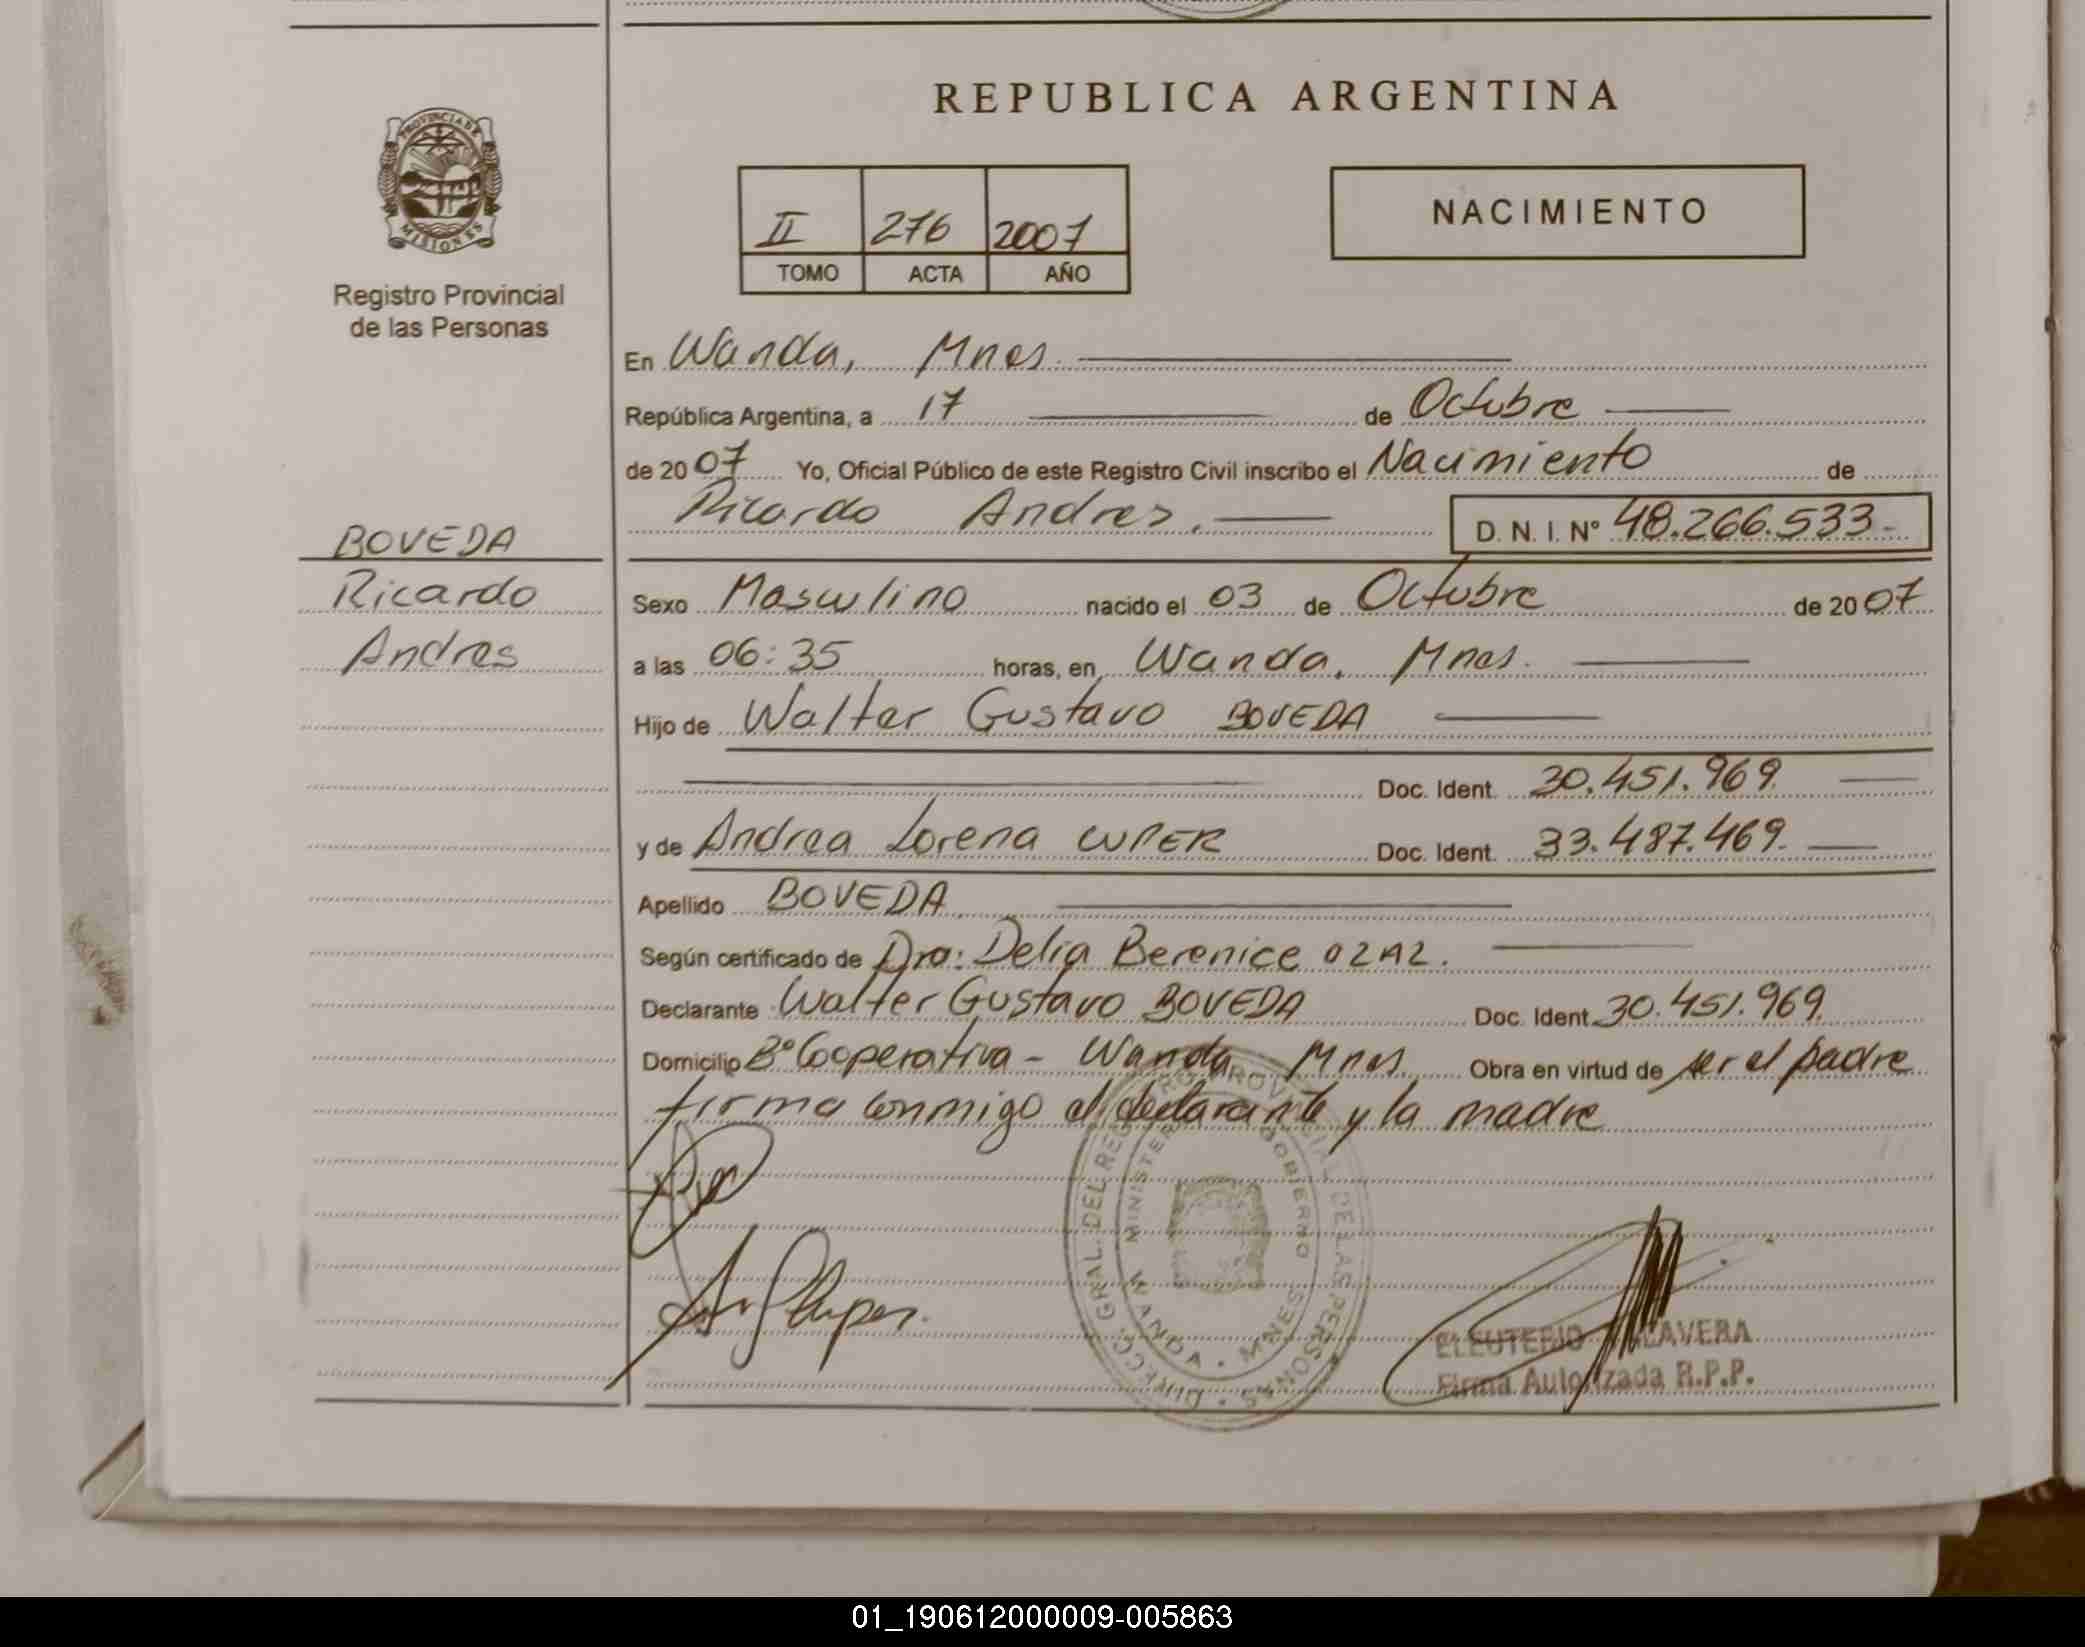 REPUBLICA ARGENTINA
PROVINCIA DE
MISIONES
Registro Provincial
de las Personas
II 276 2007
TOMO ACTA AÑO
NACIMIENTO
BOVEDA
Ricardo
Andres
En Wanda, Mnes.
República Argentina, a 17 de Octubre
de 2007 Yo, Oficial Público de este Registro Civil inscribo el Nacimiento de
Ricardo Andres. D. N. I. Nº 48.266.533-
Sexo Masculino nacido el 03 de Octubre de 2007
a las 06:35 horas, en Wanda, Mnes.
Hijo de Walter Gustavo BOVEDA
Doc. Ident. 30.451.969.
y de Andrea Lorena Doc. Ident. 33.487.469.
Apellido BOVEDA
Según certificado de Dra: Delia Berenice
Declarante Walter Gustavo BOVEDA Doc. Ident. 30.451.969.
Domicilio Bº Cooperativa - Wanda Mnes. Obra en virtud de ser el padre
firma conmigo el declarante y la madre
DIRECC. GRAL. DEL REGISTRO PROVINCIAL DE LAS PERSONAS
MINISTERIO GOBIERNO
WANDA - MNES
ELEUTERIO
Firma Autorizada R.P.P.
01_190612000009-005863